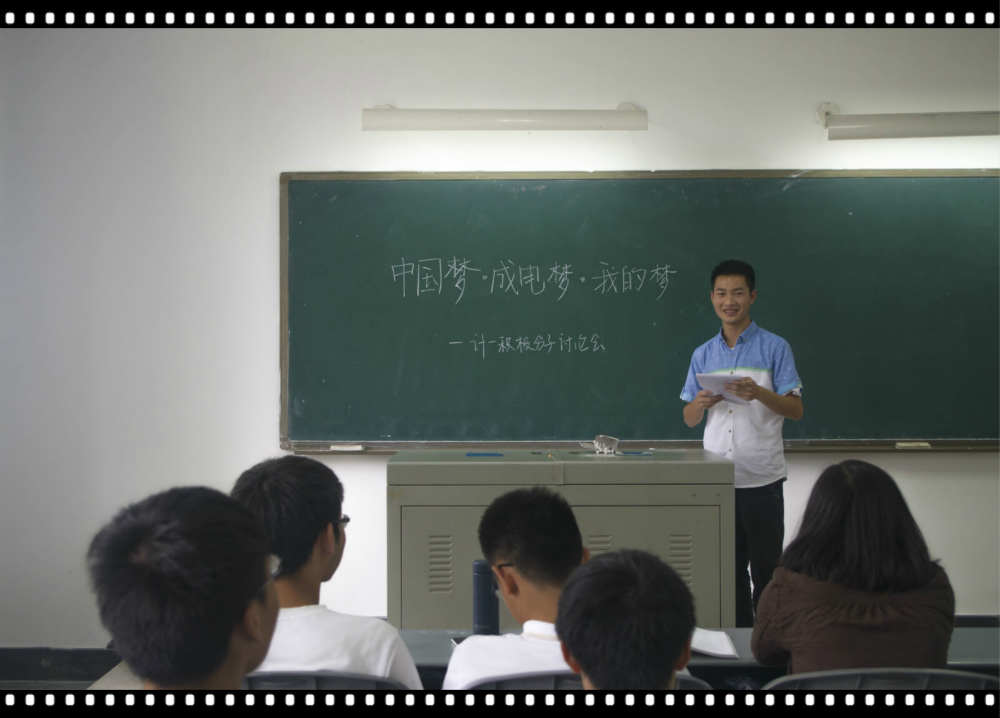 中国梦·成电梦·我的梦
—计一积极分子讨论会